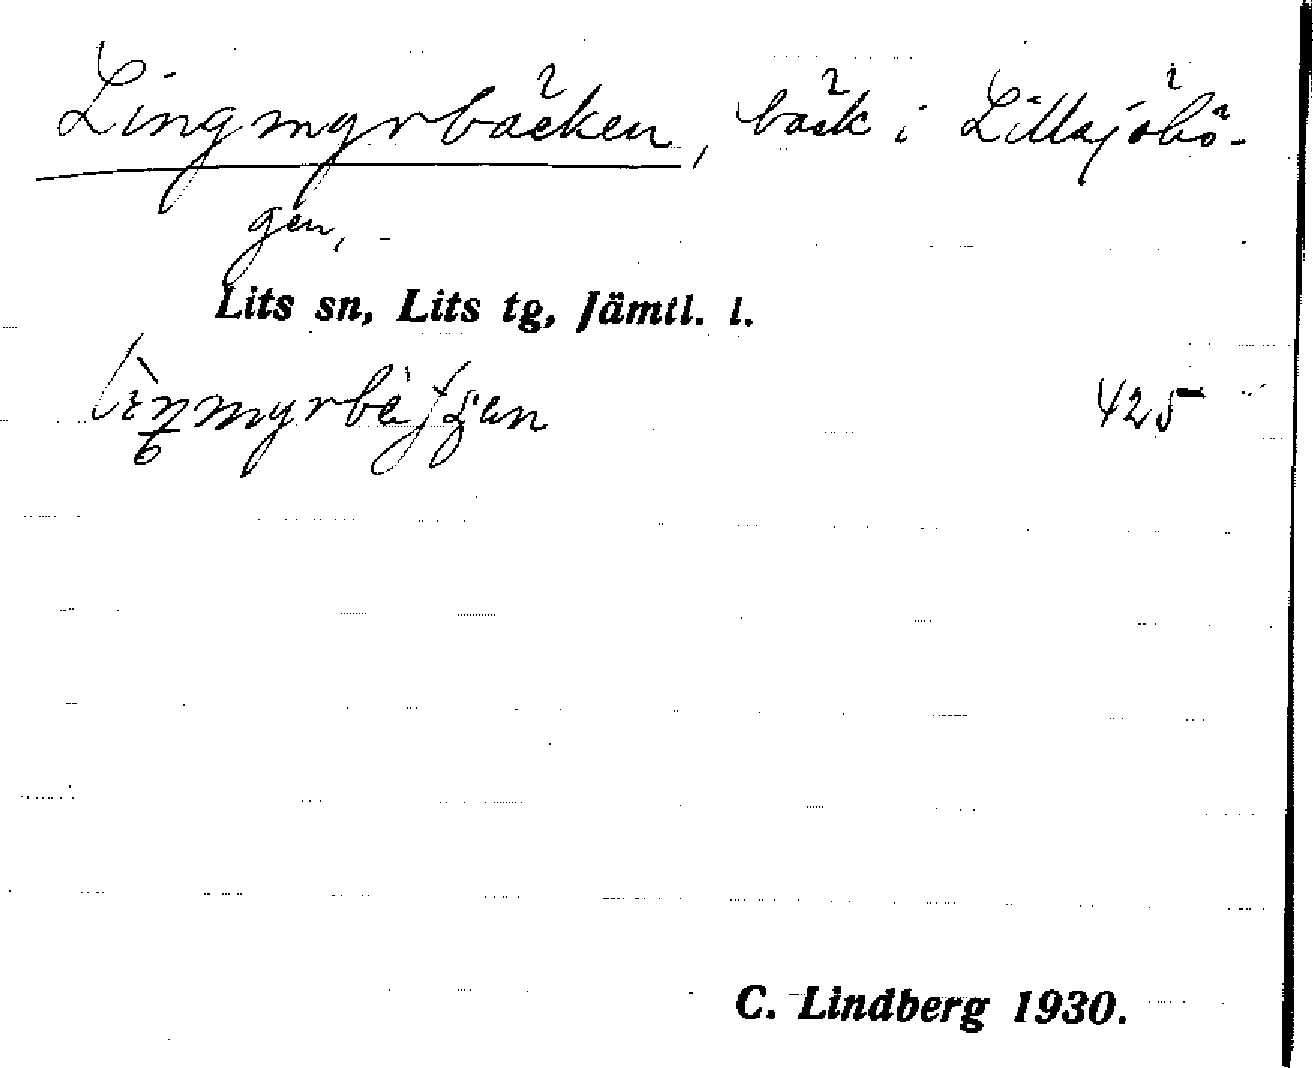 Lingmyrbäcken, bäck i Lillsjöhö-
gen,
Lits sn, Lits tg, Jämtl. l.
425
C. Lindberg 1930.